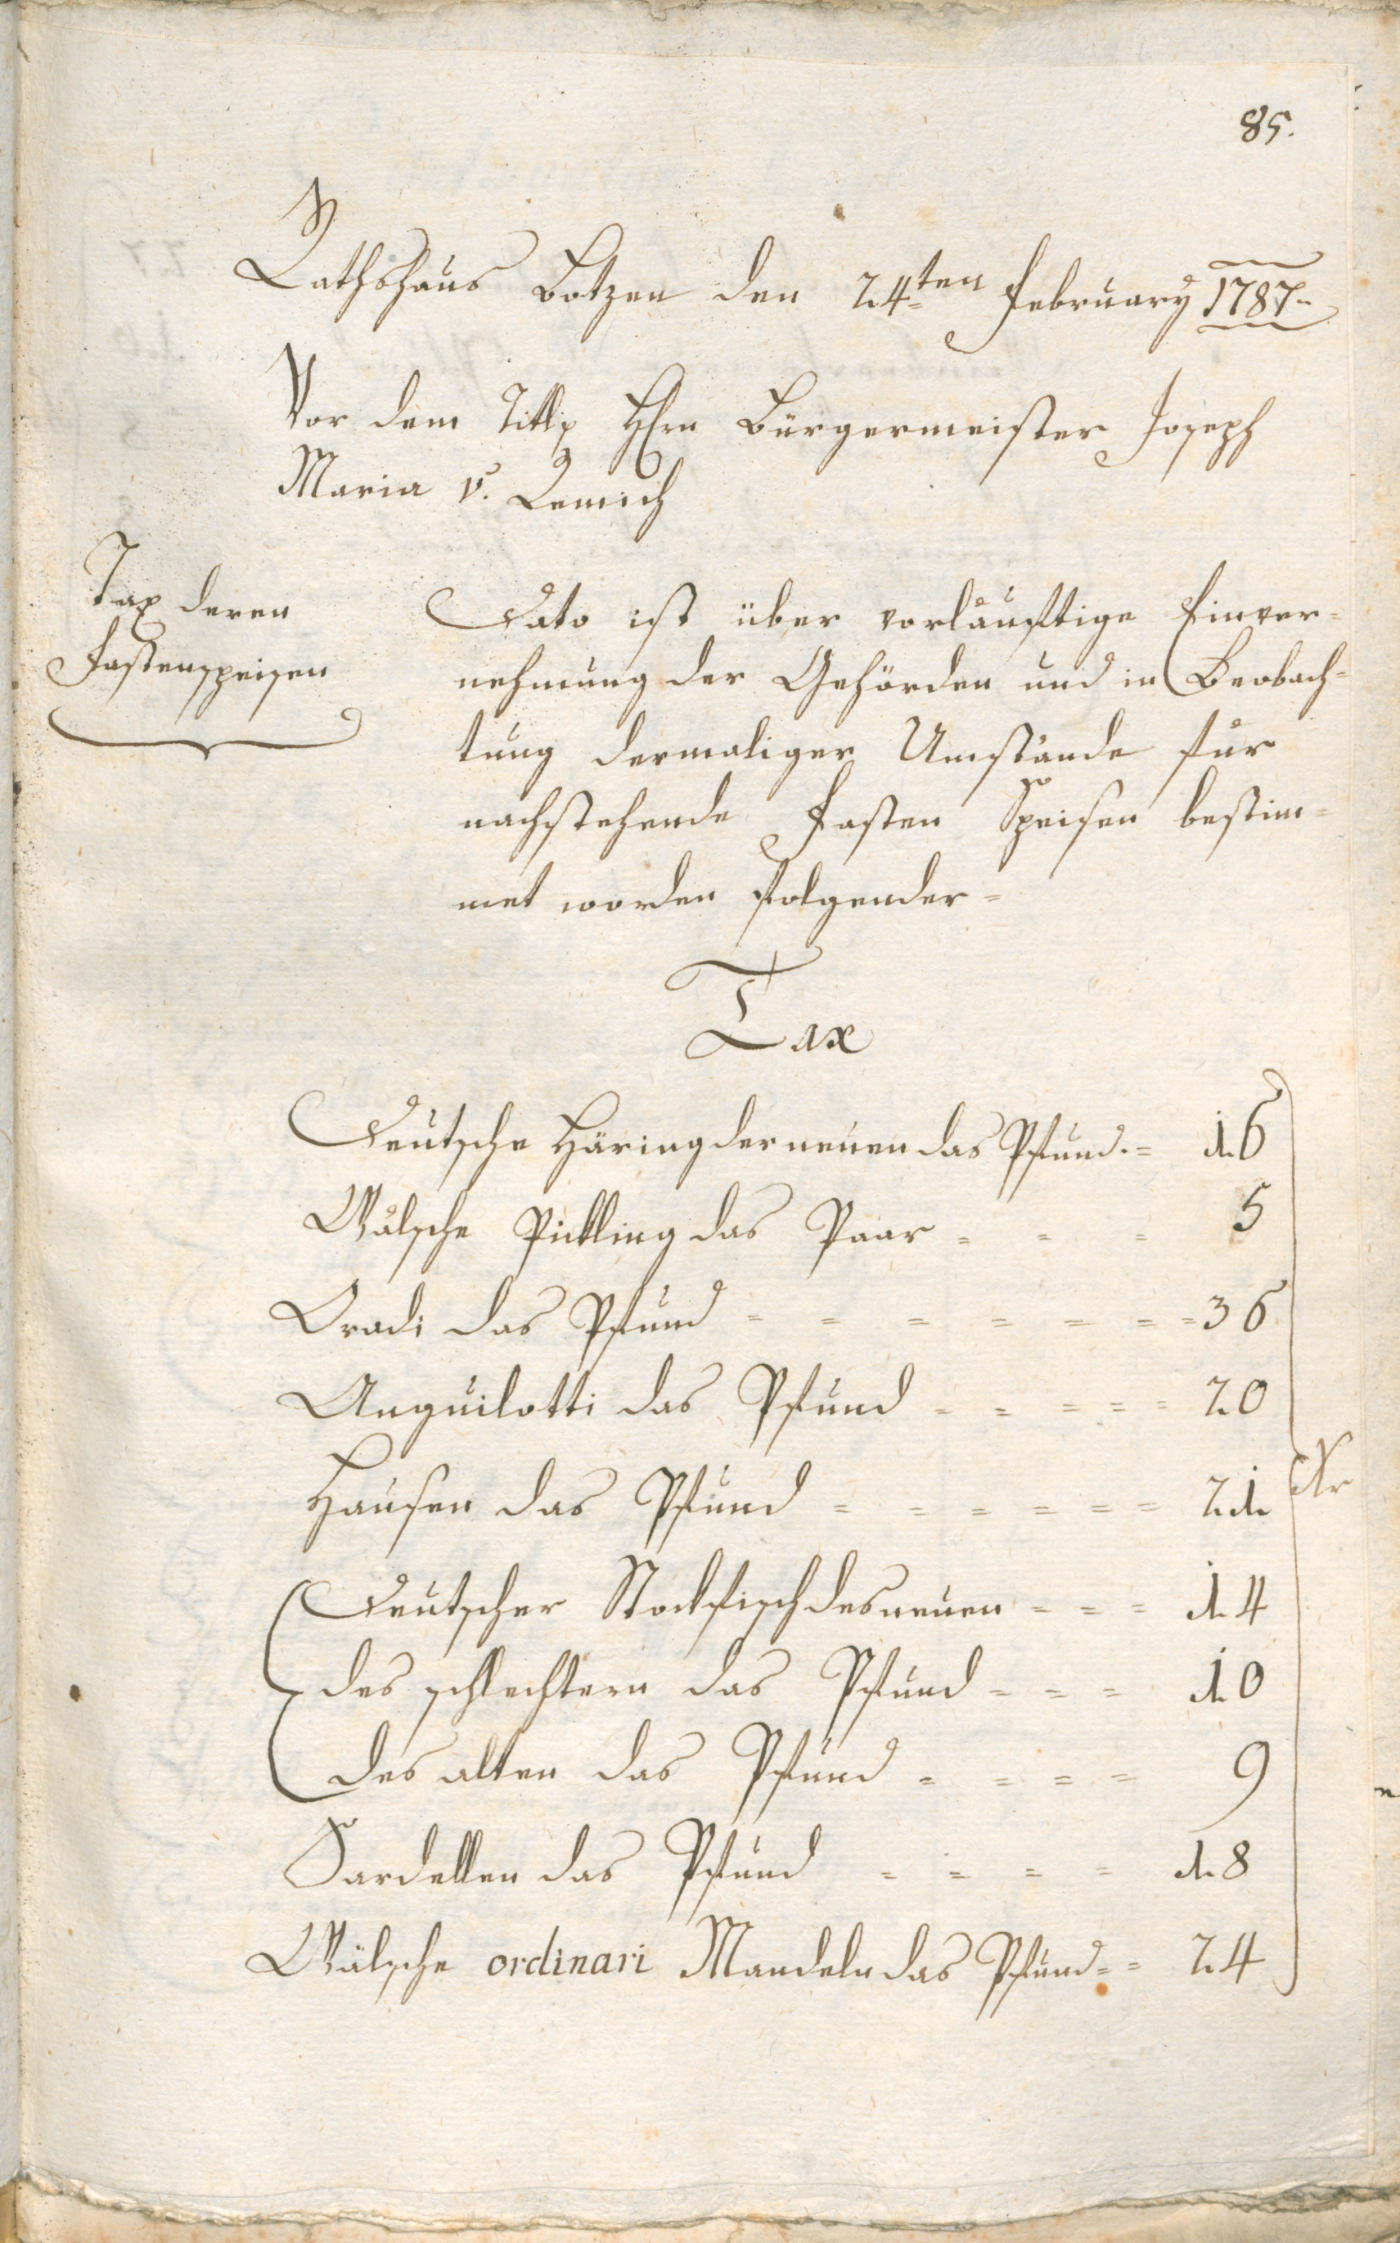 85.
Rathshaus Botzen den 24ten February 1787.
Vor dem Titl. Hhrn Bürgermeister Joseph
Maria v. Remich
Tax deren
Fastenspeisen
Dato ist über vorläuftige Einver=
nehmung der Gehörden und in Beobach=
tung dermaliger Umstände für
nachstehende Fasten Speisen bestim=
met worden folgender=
Tax
Deutsche Häring der neuen das Pfund. = 16
Wälsche Pickling das Paar = = = 5
Oradi das Pfund = = = = = = = 36
Anguilotti das Pfund = = = = = 20
Hausen das Pfund = = = = = = 21 kr
Deutscher Stockfisch des neuen = = = 14
des schlechtern das Pfund = = = 10
des alten das Pfund = = = = 9
Sardellen das Pfund = = = = 18
Wälsche ordinari Mandeln das Pfund = = 24